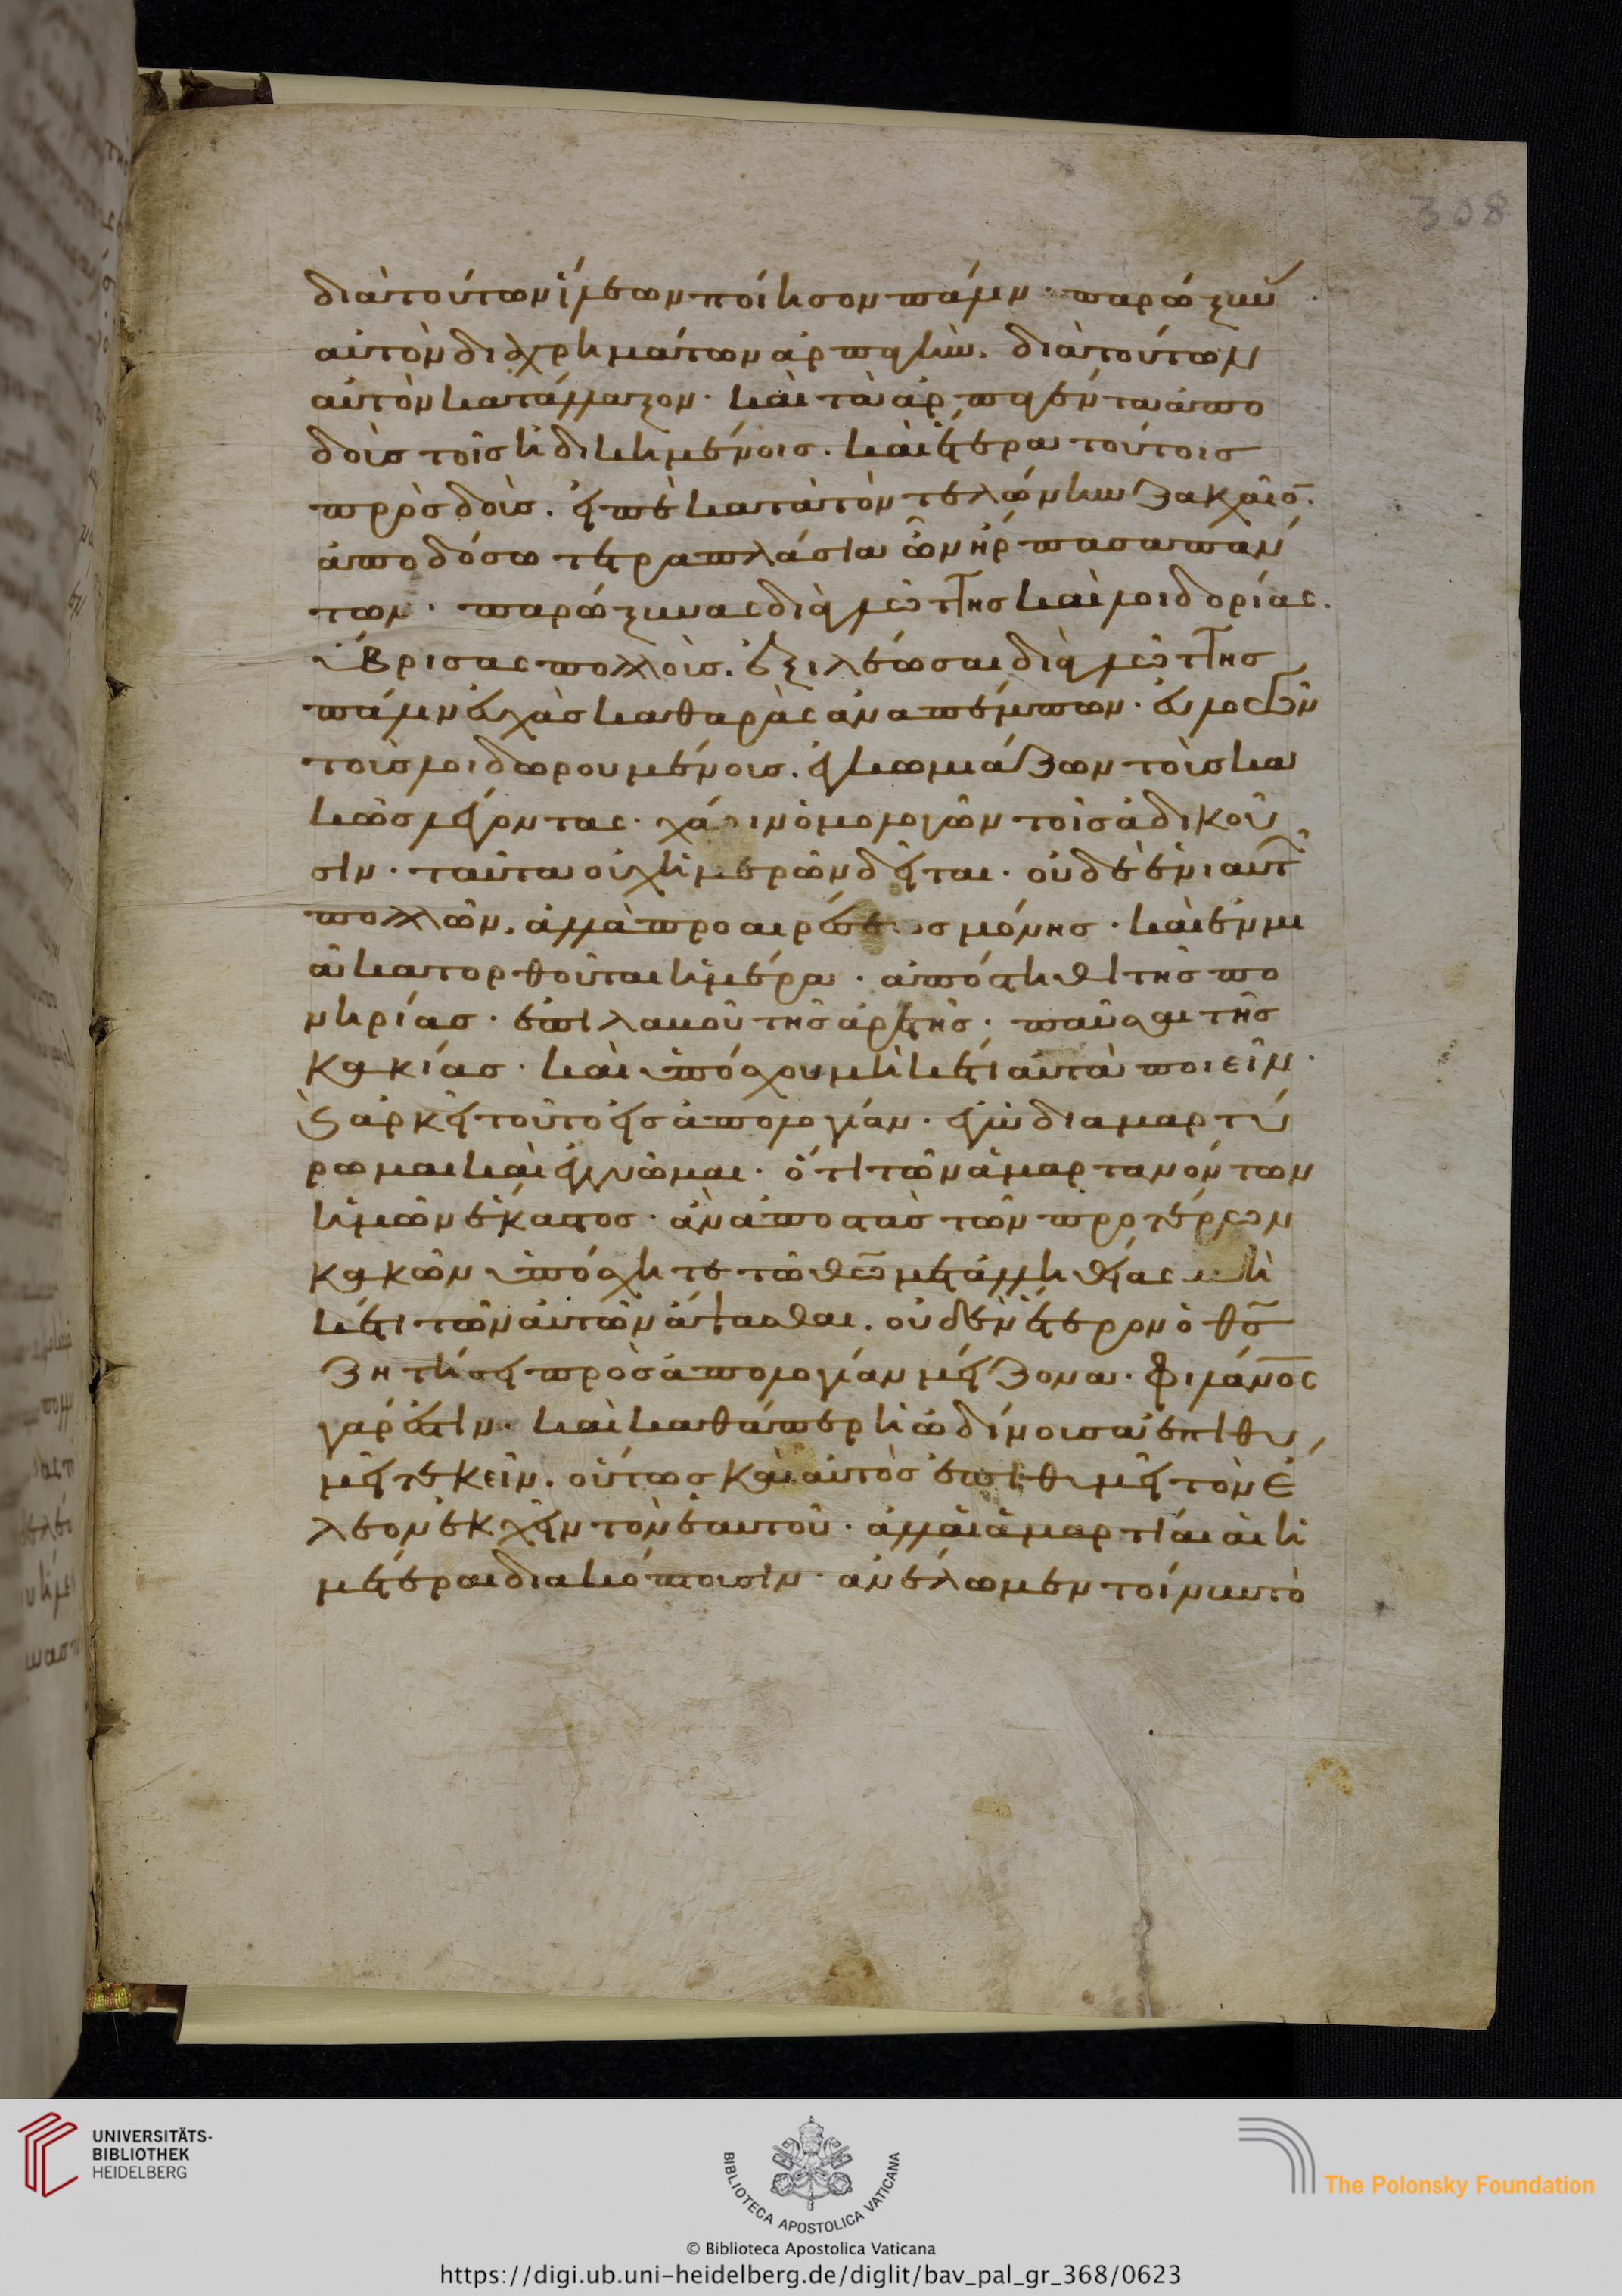 διὰ τούτων ἵλεων ποίησον πάλιν· παρώξυν
αὐτὸν διὰ χρημάτων ἁρπαγὴν. διὰ τούτων
αὐτὸν κατάλλαξον· καὶ τὰ ἁρπαγέντα ἀπο
δοὺς τοῖς ἠδικημένοις. καὶ ἕτερα τούτοις
πρὸσδοὺς. εἰπὲ κατὰ τὸν τελώνην ζακχαῖο̅.
ἀποδόσω τετραπλάσια ὧν ἥρπασα πάν
των· παρώξυνας διὰ γλώττης καὶ λοιδορίας.
ὕβρισας πολλοὺς. ἐξιλέωσαι διὰ γλώττης
πάλιν εὐχὰς καθαρὰς ἀναπέμπων· εὐλογῶν
τοὺς λοιδωρουμένους. ἐγκωμιάζων τοὺς κα
κῶς λέγοντας· χάριν ὁμολογῶν τοῖς ἀδικοῦ
σιν· ταῦτα οὐχ ἡμερῶν δεῖται· οὐδὲ ἐνιαυτ
πολλῶν. ἀλλὰ προαιρέσεως μόνης· καὶ ἐν μι
ᾶ κατορθοῦται ἡμέρα· ἀπόστηθι τῆς πο
νηρίας· ἐπιλαβοῦ τῆς ἀρετῆς· παῦσαι τῆς
κακίας· καὶ ὑπόσχου μὴ κέτι αὐτὰ ποιεῖν·
ϗ ἀρκεῖ τοῦτο εἰς ἀπολογίαν· ἐγὼ διαμαρτύ
ρωμαι καὶ ἐγγυῶμαι· ὅτι τῶν ἁμαρτανόντων
ἡμῶν ἕκαστος· ἂν ἀποστὰς τῶν προτέρων
κακῶν ὑπόσχητε τῶ θω̅ μετ ἀλληθείας μὴ
κέτι τῶν αὐτῶν ἅψασθαι. οὐδὲν ἕτερον ὁ θς̅
ζητήσει πρὸς ἀπολογίαν μείζονα· φιλάνο̅ς
γάρ ἐστιν· καὶ καθάπερ ἡ ὠδίνουσα ἐπιθυ
μεῖ τεκεῖν. οὕτως καὶ αὐτὸς ἐπιθυμεῖ τὸν ἔ
λεον ἐκχέειν τὸν ἑαυτοῦ· ἀλλ αἱ ἁμαρτίαι αἱ ἡ
μέτεραι διακόπτουσιν· ἀνέλωμεν τοίνυν τὸ
308
UNIVERSITÄTS-
BIBLIOTHEK
HEIDELBERG
BIBLIOTECA APOSTOLICA VATICANA
The Polonsky Foundation
© Biblioteca Apostolica Vaticana
https://digi.ub.uni-heidelberg.de/diglit/bav_pal_gr_368/0623